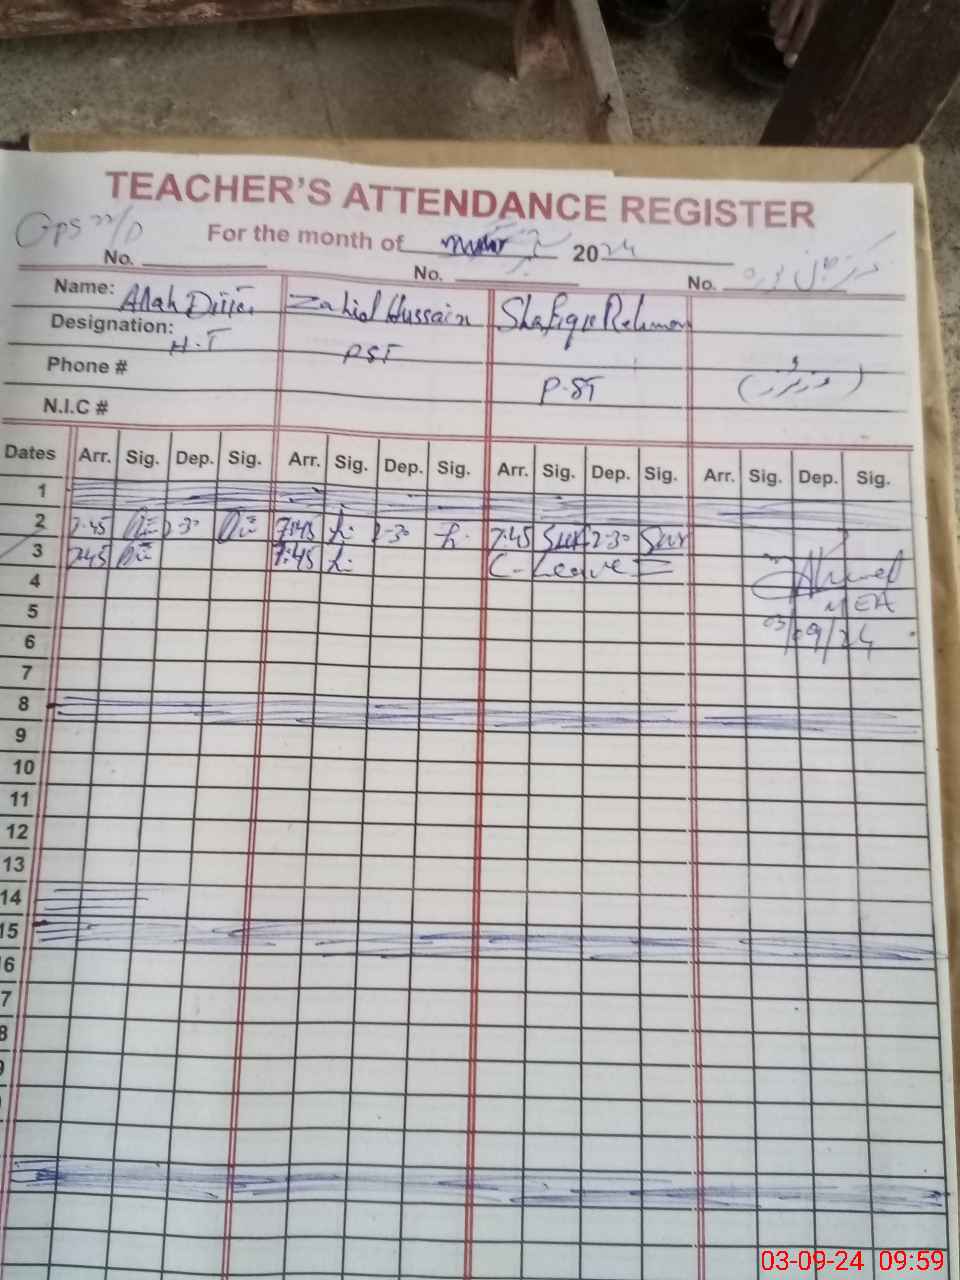 TEACHER'S ATTENDANCE REGISTER
Gps 22/D
For the month of 2024
No. No. No.
Name: Allah Zahid Hussain Shafiq Rehman
Designation: H.T PST P.ST
Phone #
N.I.C #
Dates Arr. Sig. Dep. Sig. Arr. Sig. Dep. Sig. Arr. Sig. Dep. Sig. Arr. Sig. Dep. Sig.
1
2 7:45 2-30 7:45 2-30 7:45 2-30
3 7:45 7:45 C-Leave
4 MEA
5 03/09/24
6
7
8
9
10
11
12
13
14
15
6
7
8
9
03-09-24 09:59